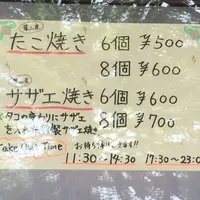 たこ焼き 6個 ¥500
8個 ¥600
サザエ焼き 6個 ¥600
8個 ¥700
タコの変わりにサザエ
を入れた特製サザエ焼き
Take Out Time
お持ち帰りできます!!
11:30〜14:30 17:30〜23:0